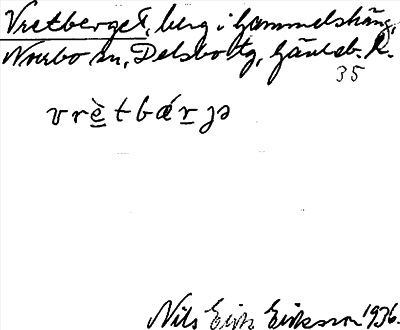 Vretberget, berg i Gammelshäng,
Norrbo sn, Delsbo tg, Gävleb. l.
35
vrètbárjə
Nils Eirik Eriksson 1936.